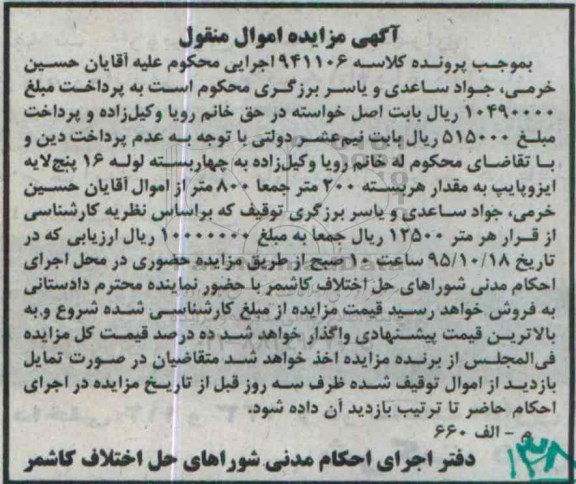 آگهی مزایده اموال منقول
بموجب پرونده کلاسه ۹۴۱۱۰۶ اجرایی محکوم علیه آقایان حسین
خرمی، جواد ساعدی و یاسر برزگری محکوم است به پرداخت مبلغ
۱۰۴۹۰۰۰۰ ریال بابت اصل خواسته در حق خانم رویا وکیل‌زاده و پرداخت
مبلغ ۵۱۵۰۰۰ ریال بابت نیم‌عشر دولتی با توجه به عدم پرداخت دین و
با تقاضای محکوم له خانم رویا وکیل‌زاده به چهاربسته لوله ۱۶ پنج‌لایه
ایزوپایپ به مقدار هربسته ۲۰۰ متر جمعا ۸۰۰ متر از اموال آقایان حسین
خرمی، جواد ساعدی و یاسر برزگری توقیف که براساس نظریه کارشناسی
از قرار هر متر ۱۲۵۰۰ ریال جمعا به مبلغ ۱۰۰۰۰۰۰۰ ریال ارزیابی که در
تاریخ ۹۵/۱۰/۱۸ ساعت ۱۰ صبح از طریق مزایده حضوری در محل اجرای
احکام مدنی شوراهای حل اختلاف کاشمر با حضور نماینده محترم دادستانی
به فروش خواهد رسید قیمت مزایده از مبلغ کارشناسی شده شروع و به
بالاترین قیمت پیشنهادی واگذار خواهد شد ده درصد قیمت کل مزایده
فی‌المجلس از برنده مزایده اخذ خواهد شد متقاضیان در صورت تمایل
بازدید از اموال توقیف شده ظرف سه روز قبل از تاریخ مزایده در اجرای
احکام حاضر تا ترتیب بازدید آن داده شود.
م - الف ۶۶۰
دفتر اجرای احکام مدنی شوراهای حل اختلاف کاشمر
۱۳۸